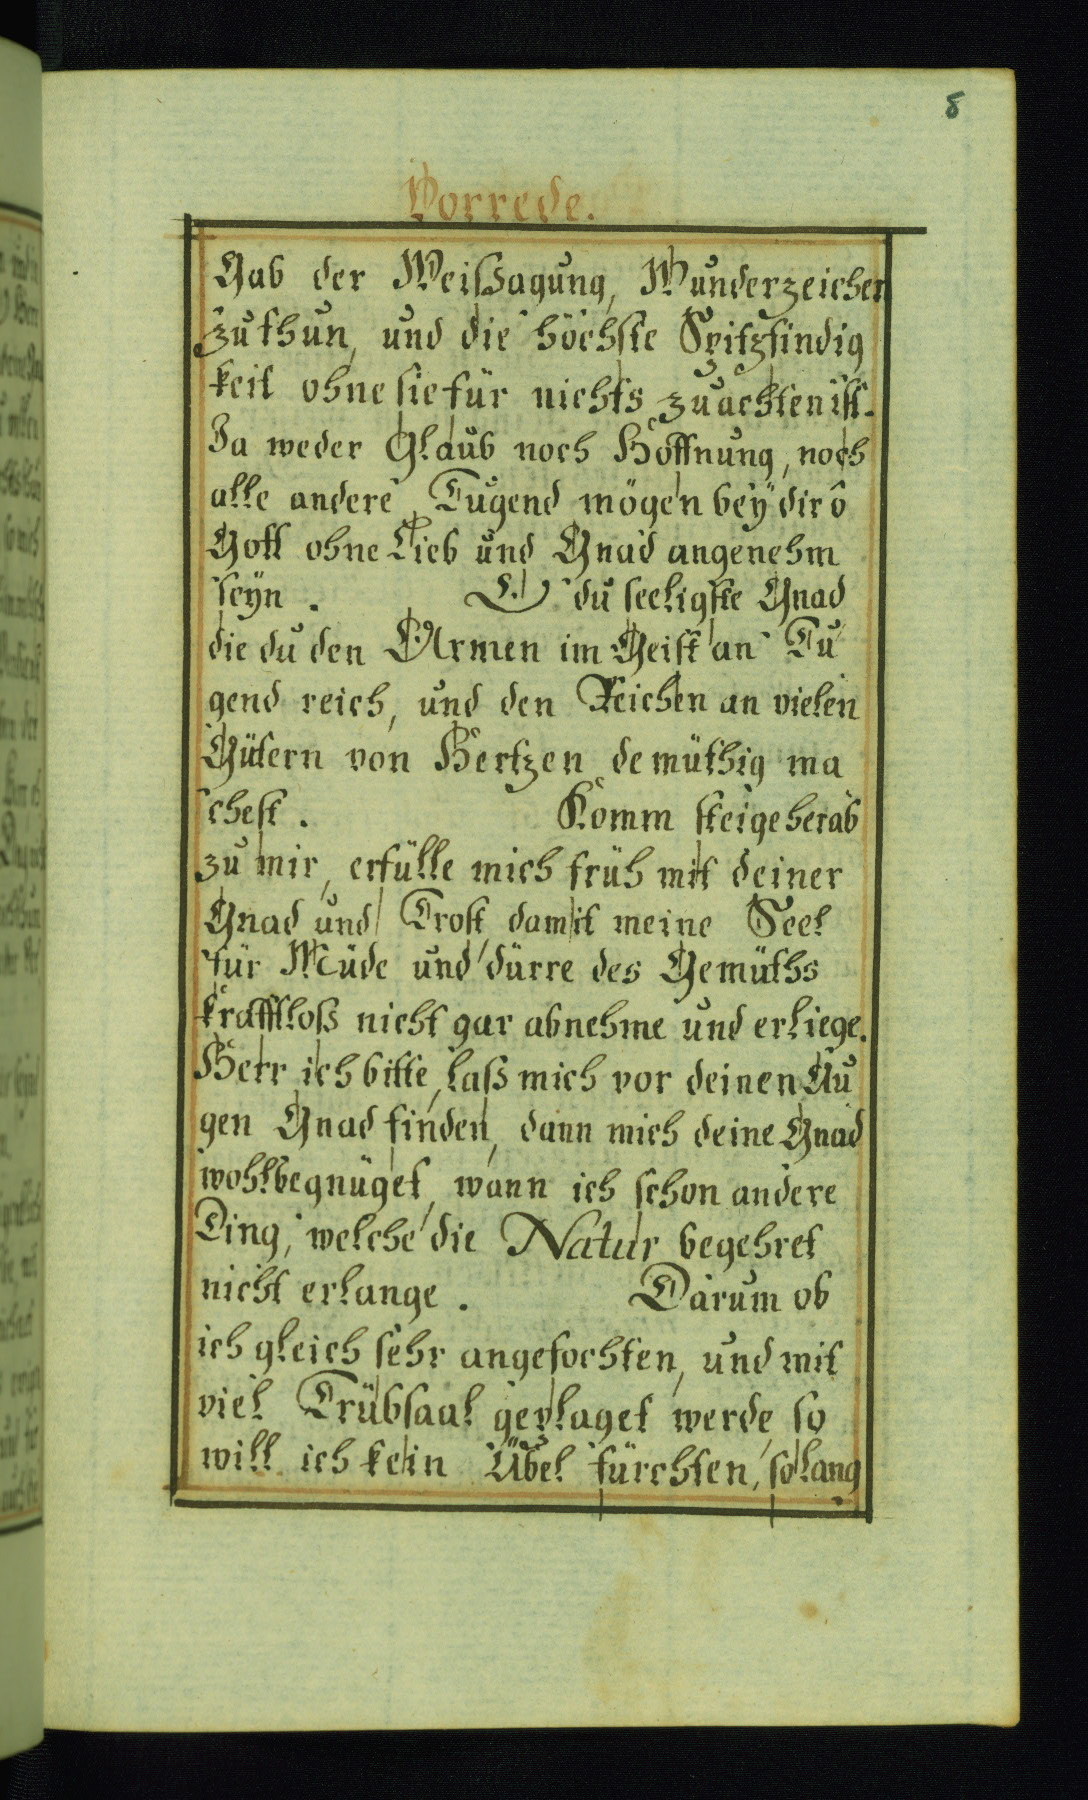 8
Vorrede.
Gab der Weissagung, Wunderzeichen
zuthun, und die höchste Spitzfindig
keit ohne sie für nichts zuachten ist.
Ja weder Glaub noch Hoffnung, noch
alle andere Tugend mögen bey dir ô
Gott ohne Lieb und Gnad angenehm
seyn. O du seeligste Gnad
die du den Armen im Geist an Tu
gend reich, und den Reichen an vielen
Gütern von Hertzen demüthig ma
chest. Komm steige herab
zu mir, erfülle mich früh mit deiner
Gnad und Trost damit meine Seel
für Müde und dürre des Gemüths
krafftloß nicht gar abnehme und erliege.
Herr ich bitte, laß mich vor deinen Au
gen Gnad finden, dann mich deine Gnad
wohlbegnüget, wann ich schon andere
Ding, welche die Natur begehret
nicht erlange. Darum ob
ich gleich sehr angefochten, und mit
viel Trübsaal geplaget werde, so
will ich kein Übel fürchten, so lang